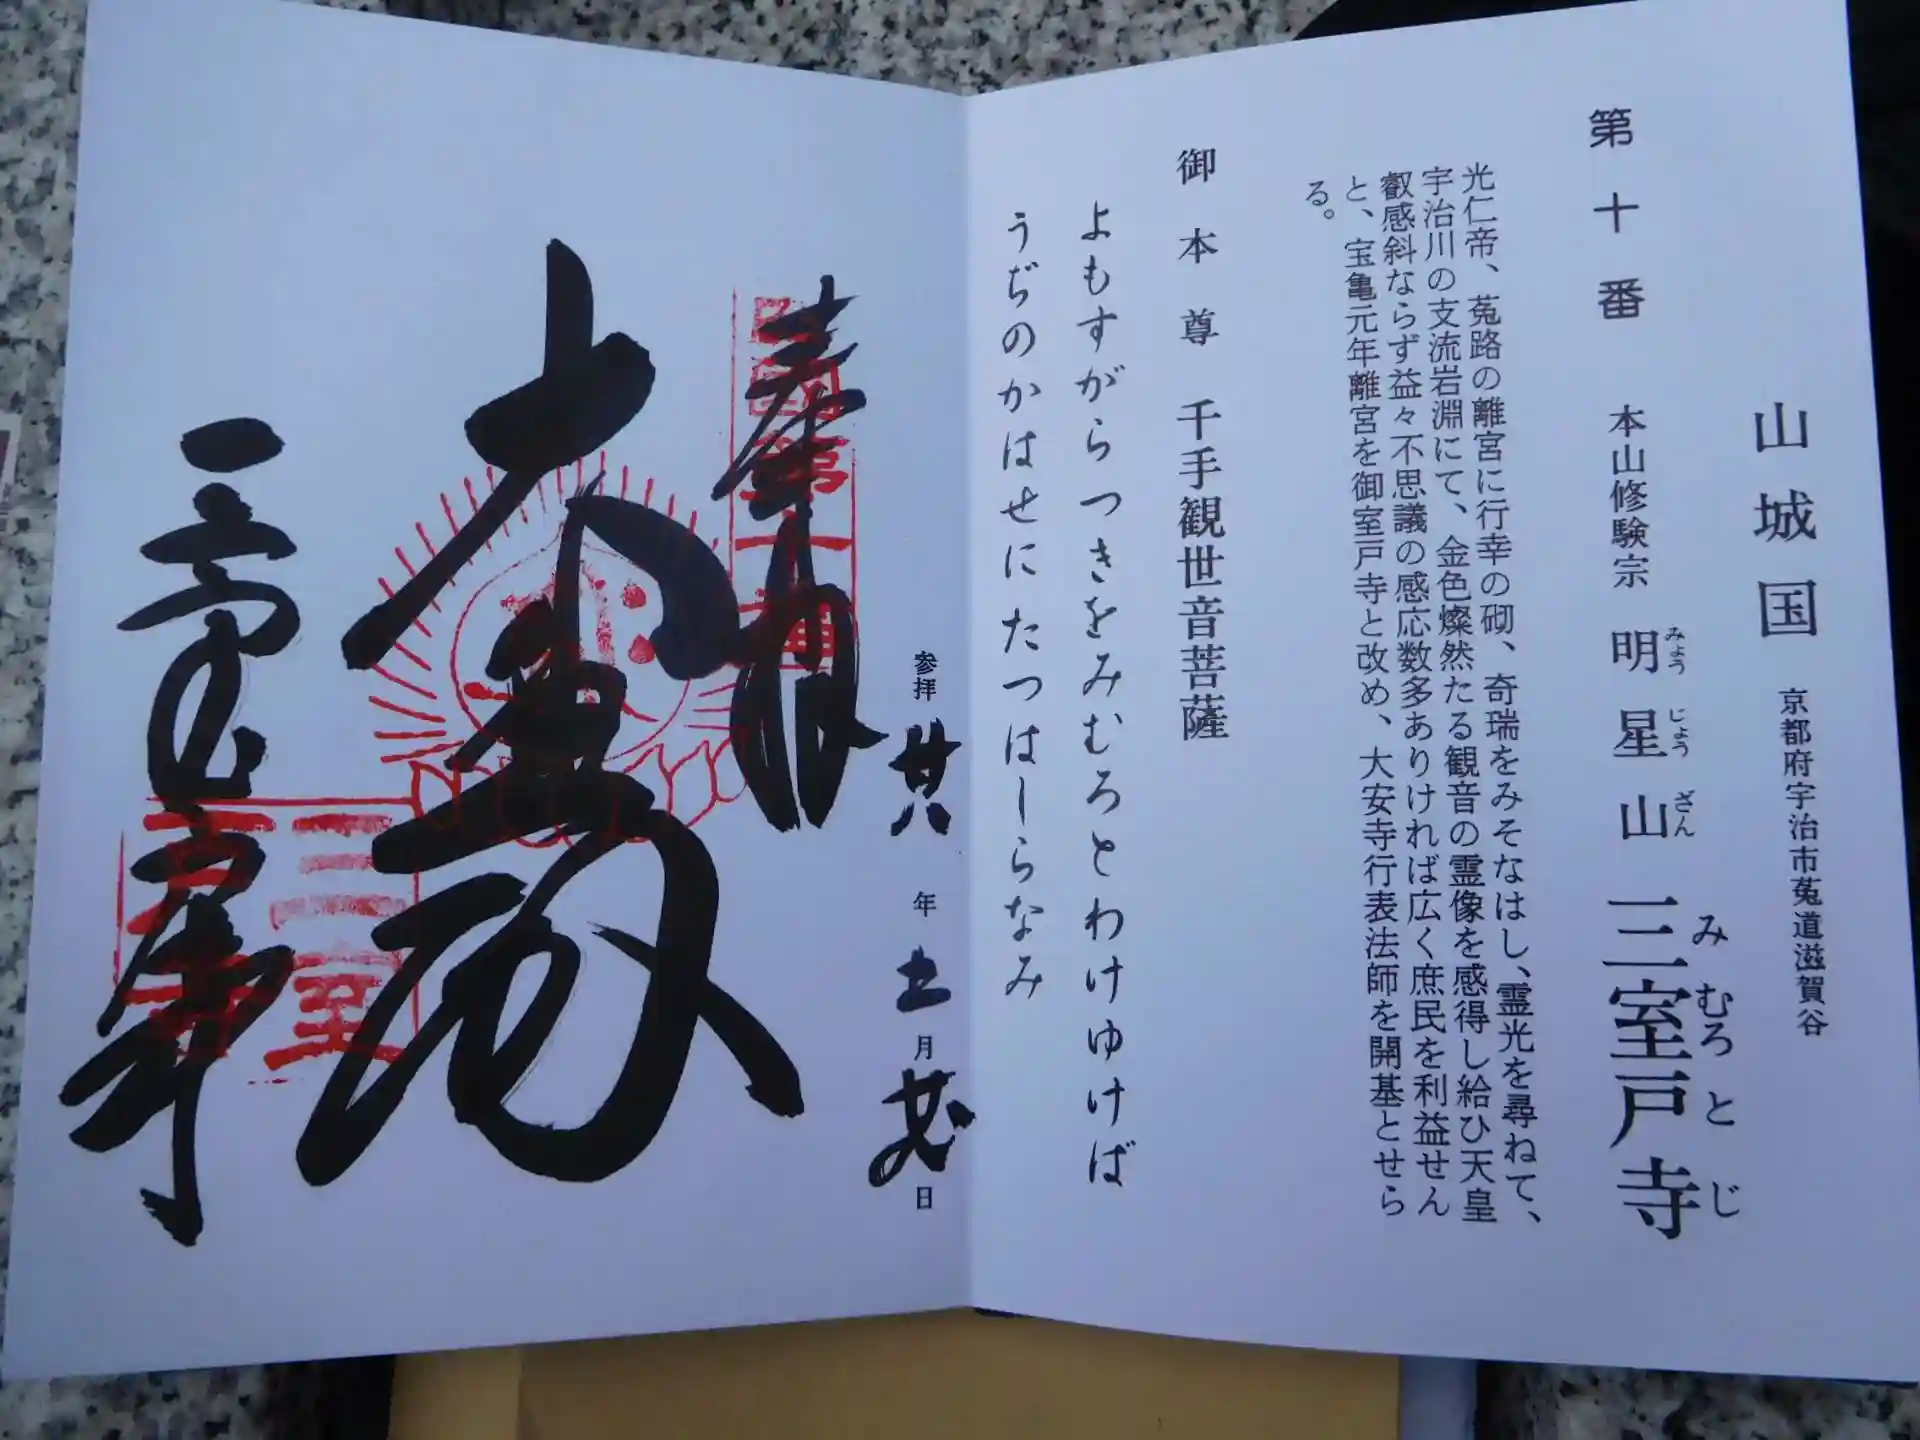 山城国 京都府宇治市菟道滋賀谷
第十番 本山修験宗 明星山 三室戸寺
みょう じょう ざん みむろとじ
光仁帝、菟路の離宮に行幸の砌、奇瑞をみそなはし、霊光を尋ねて、
宇治川の支流岩淵にて、金色燦然たる観音の霊像を感得し給ひ天皇
叡感斜ならず益々不思議の感応数多ありければ広く庶民を利益せん
と、宝亀元年離宮を御室戸寺と改め、大安寺行表法師を開基とせら
る。
御本尊 千手観世音菩薩
よもすがらつきをみむろとわけゆけば
うぢのかはせにたつはーらなみ
参拝 廿八年土月廿六日
奉拝
西国第十番
大悲殿
三室戸寺
三室